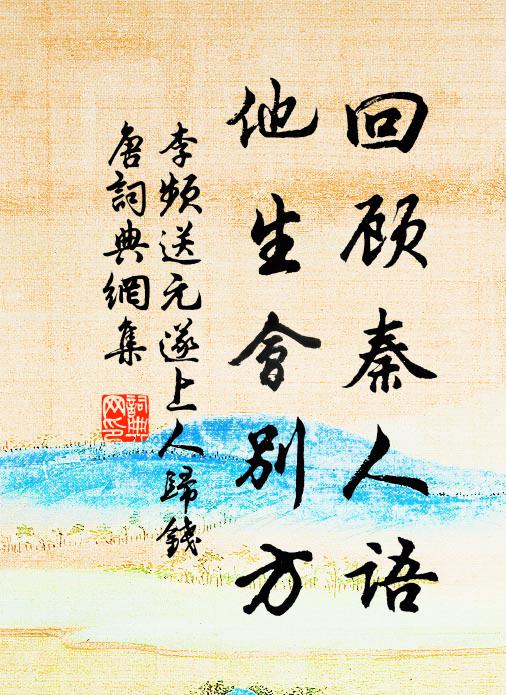 回顾秦人语
他生會別方
李频送元遂上人歸錢
唐詞典網集
詞典网印